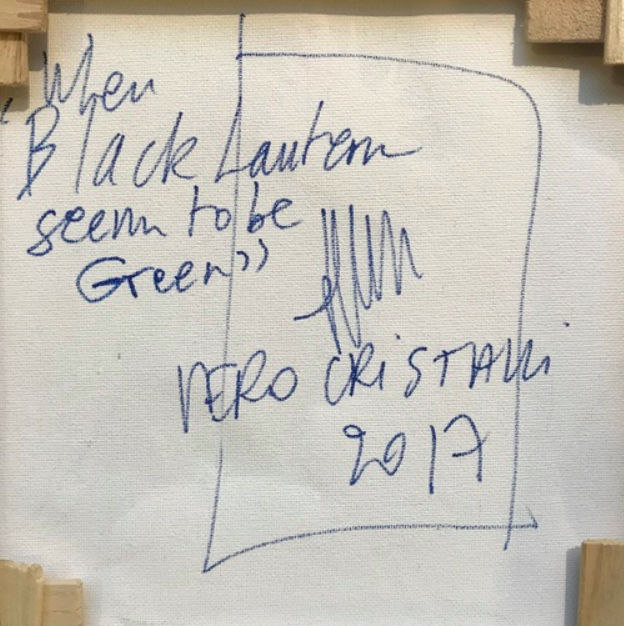 "When
Black Lantern
seem to be
Green"
VERO CRiSTALLi
2017